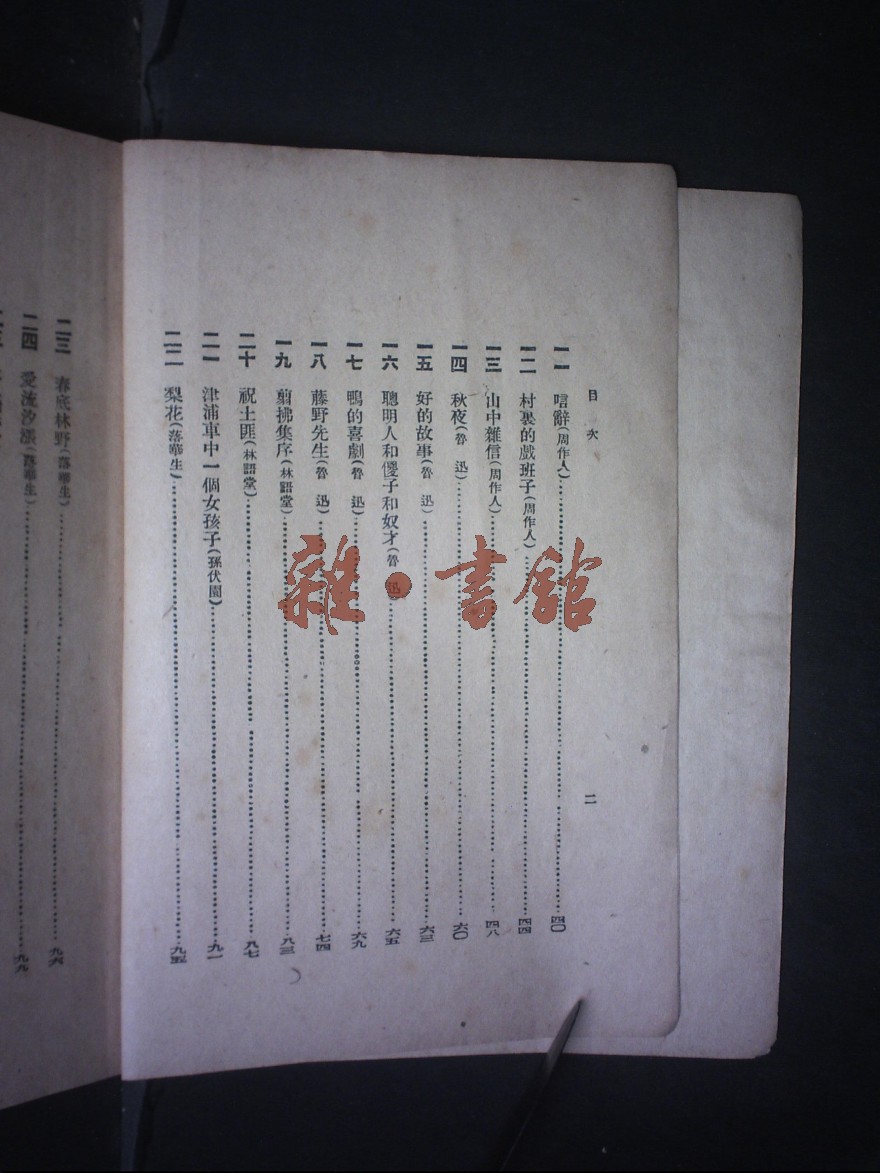 目次
二
一一 唁辭(周作人)四〇
一二 村裏的戲班子(周作人)四四
一三 山中雜信(周作人)四八
一四 秋夜(魯迅)六〇
一五 好的故事(魯迅)六三
一六 聰明人和傻子和奴才(魯迅)六五
一七 鴨的喜劇(魯迅)六九
一八 藤野先生(魯迅)七四
一九 翦拂集序(林語堂)八三
二十 祝土匪(林語堂)八七
二一 津浦車中一個女孩子(孫伏園)九一
二二 梨花(落華生)九五
二三 春底林野(落華生)九六
二四 愛流汐漲(落華生)九九
雜·書館